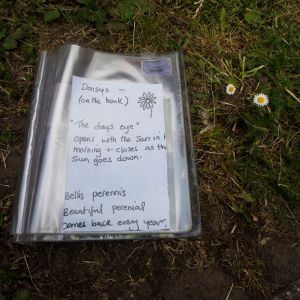 Daisys –
(on the bank)
"The days eye"
opens with the Sun in
morning + closes as the
Sun goes down.
Bellis perennis
Beautiful perenial
comes back every year.